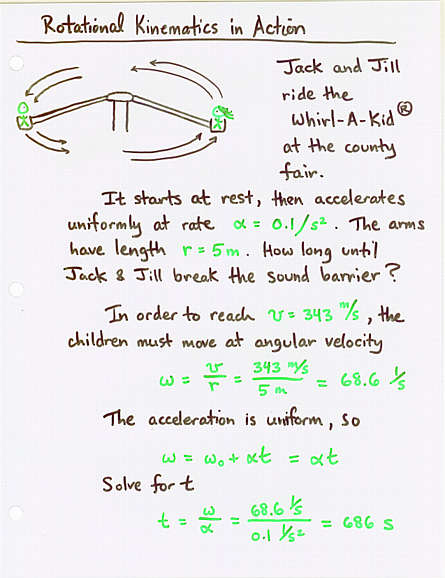 Rotational Kinematics in Action
Jack and Jill
ride the
Whirl-A-Kid ®
at the county
fair.
It starts at rest, then accelerates
uniformly at rate α = 0.1/s². The arms
have length r = 5m. How long until
Jack & Jill break the sound barrier?
In order to reach v = 343 m/s, the
children must move at angular velocity
ω = v/r = 343 m/s / 5 m = 68.6 1/s
The acceleration is uniform, so
ω = ω₀ + αt = αt
Solve for t
t = ω/α = 68.6 1/s / 0.1 1/s² = 686 s